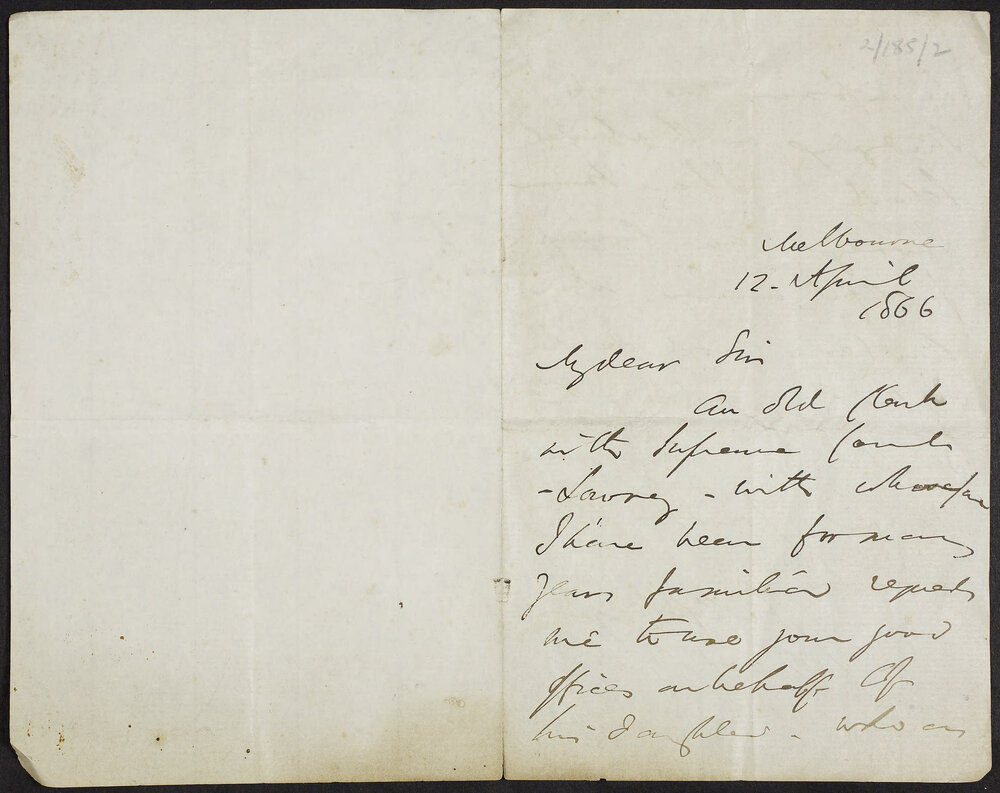 2/185/2
Melbourne
12 - April
1866
My dear Sir
An old Clerk
in the Supreme Court
- Lowrey - with whose
I have been for many
years familiar requests
me to use your good
offices on behalf of
his daughter - who is